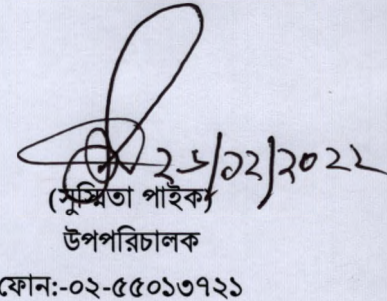 ২১/১২/২০২২
(সুস্মিতা পাইক)
উপপরিচালক
ফোন:-০২-৫৫০১৩৭২১